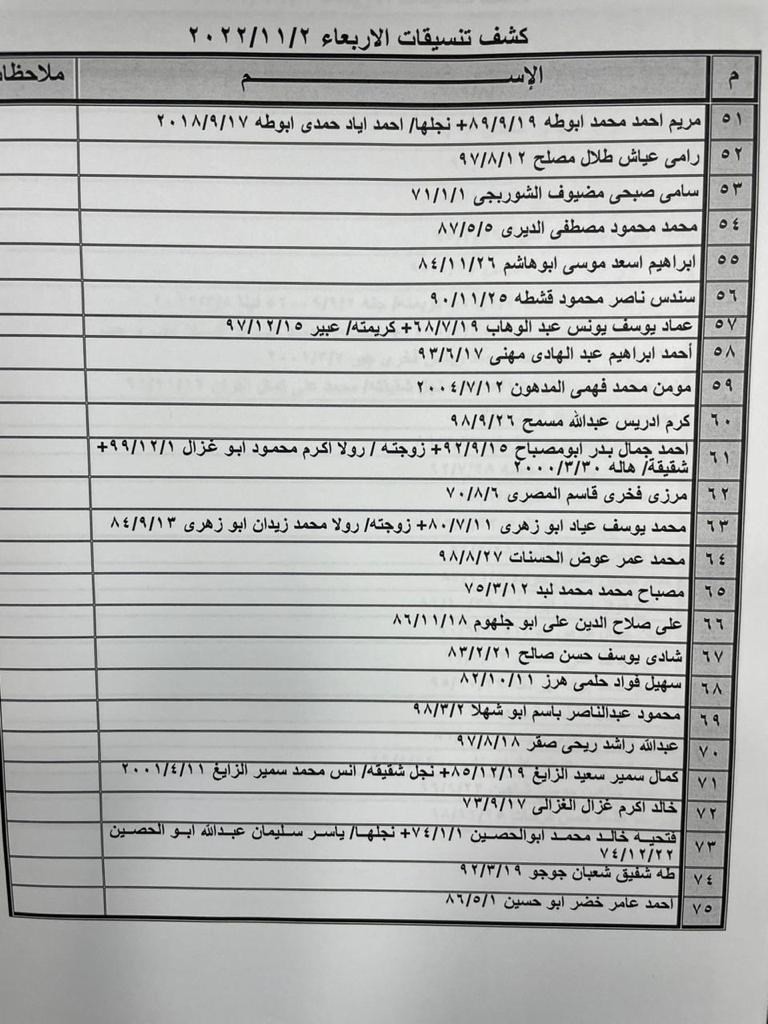 كشف تنسيقات الاربعاء ٢٠٢٢/١١/٢
م الإســـــــــم ملاحظا
٥١ مريم احمد محمد ابوطه ٨٩/٩/١٩+ نجلها/ احمد اياد حمدى ابوطه ٢٠١٨/٩/١٧
٥٢ رامى عياش طلال مصلح ٩٧/٨/١٢
٥٣ سامى صبحى مضيوف الشوربجى ٧١/١/١
٥٤ محمد محمود مصطفى الديرى ٨٧/٥/٥
٥٥ ابراهيم اسعد موسى ابوهاشم ٨٤/١١/٢٦
٥٦ سندس ناصر محمود قشطه ٩٠/١١/٢٥
٥٧ عماد يوسف يونس عبد الوهاب ٦٨/٧/١٩+ كريمته/ عبير ٩٧/١٢/١٥
٥٨ أحمد ابراهيم عبد الهادى مهنى ٩٣/٦/١٧
٥٩ مومن محمد فهمى المدهون ٢٠٠٤/٧/١٢
٦٠ كرم ادريس عبدالله مسمح ٩٨/٩/٢٦
٦١ احمد جمال بدر ابومصباح ٩٢/٩/١٥+ زوجته / رولا اكرم محمود ابو غزال ٩٩/١٢/١+
شقيقة/ هاله ٢٠٠٠/٣/٣٠
٦٢ مرزى فخرى قاسم المصرى ٧٠/٨/٦
٦٣ محمد يوسف عياد ابو زهرى ٨٠/٧/١١+ زوجته/ رولا محمد زيدان ابو زهرى ٨٤/٩/١٣
٦٤ محمد عمر عوض الحسنات ٩٨/٨/٢٧
٦٥ مصباح محمد محمد لبد ٧٥/٣/١٢
٦٦ على صلاح الدين على ابو جلهوم ٨٦/١١/١٨
٦٧ شادى يوسف حسن صالح ٨٣/٢/٢١
٦٨ سهيل فواد حلمى هرز ٨٢/١٠/١١
٦٩ محمود عبدالناصر باسم ابو شهلا ٩٨/٣/٢
٧٠ عبدالله راشد ريحى صقر ٩٧/٨/١٨
٧١ كمال سمير سعيد الزايغ ٨٥/١٢/١٩+ نجل شقيقه/ انس محمد سمير الزايغ ٢٠٠١/٤/١١
٧٢ خالد اكرم غزال الغزالى ٧٣/٩/١٧
٧٣ فتحيه خالد محمد ابوالحصين ٧٤/١/١+ نجلها/ ياسر سليمان عبدالله ابو الحصين
٧٤/١٢/٢٢
٧٤ طه شفيق شعبان جوجو ٩٢/٣/١٩
٧٥ احمد عامر خضر ابو حسين ٨٦/٥/١